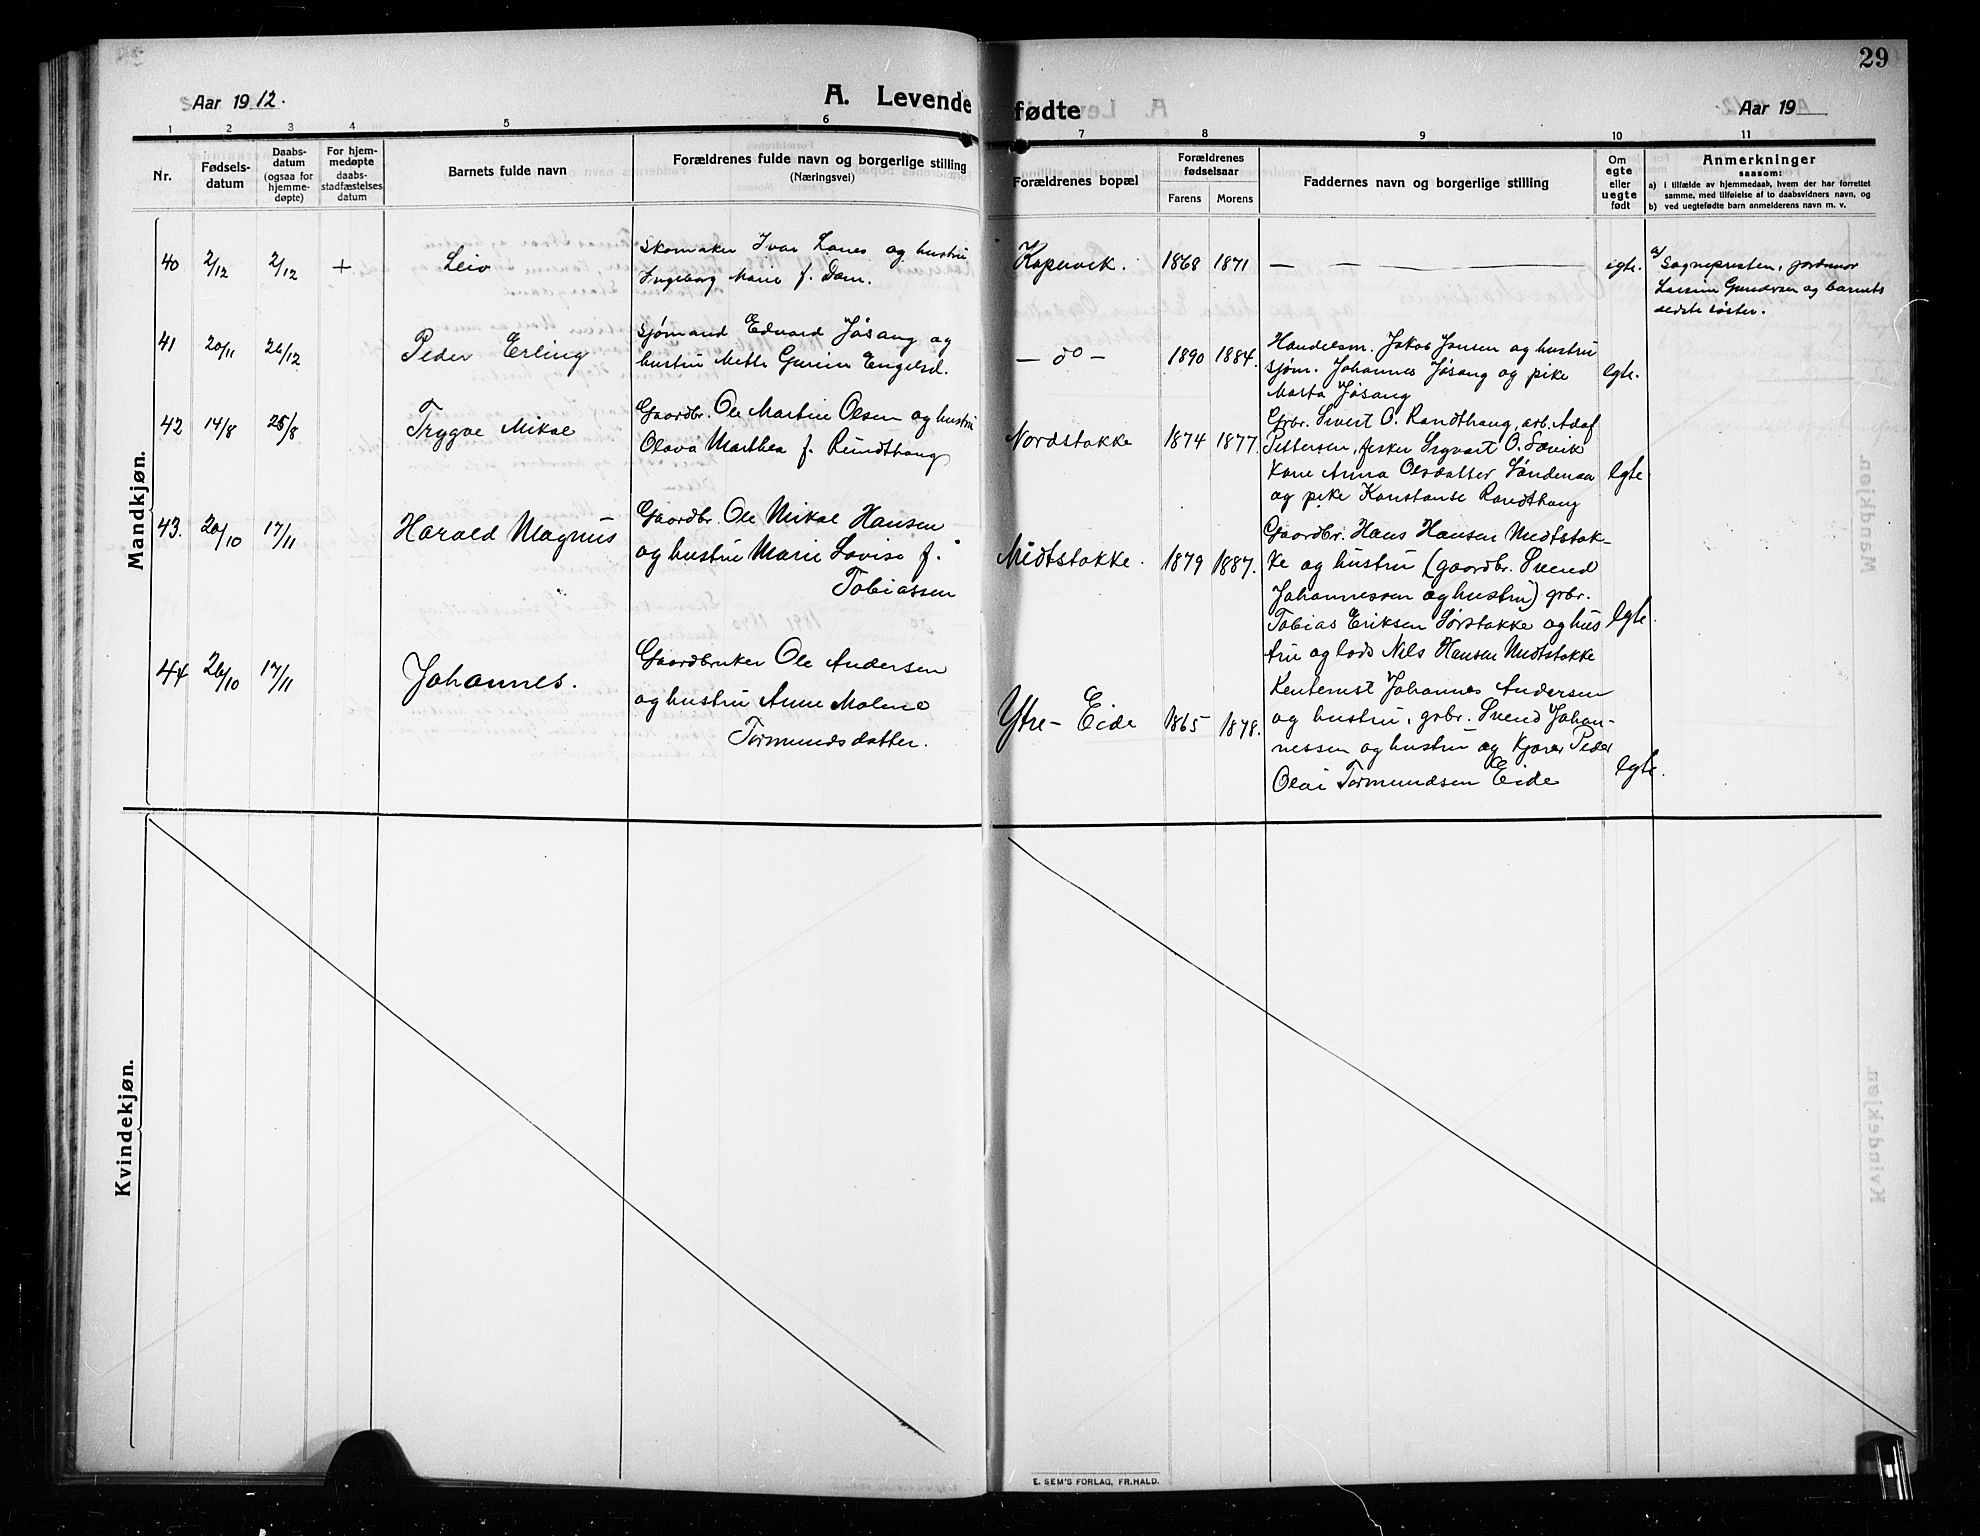 29
Aar 1912.
A. Levende
fødte
Aar 19
1 2 3 4 5 6
7 8 9 10 11
Nr.
Fødsels-
datum
Daabs-
datum
(ogsaa for
hjemme-
døpte)
For hjem-
medøpte
daabs-
stadfæstelses
datum
Barnets fulde navn
Forældrenes fulde navn og borgerlige stilling
(Næringsvei)
Forældrenes bopæl
Forældrenes
fødselsaar
Farens Morens
Faddernes navn og borgerlige stilling
Om
egte
eller
uegte
født
Anmerkninger
saasom:
a) i tilfælde av hjemmedaab, hvem der har forrettet
samme, med tilføielse af to daabsvidners navn, og
b) ved uegtefødte barn anmelderens navn m. v.
Mandkjøn.
40 2/12 2/12 + Leiv
Skomaker Ivar Lanes og hustru
Ingeborg Marie f. Dam.
Kopervik. 1868 1871 — — — egte.
a/ Sognepresten, jordmor
Gundersen og barnets
ældste søster.
41 20/11 26/12 Peder Erling
Sjømand Edvard Jøsang og
hustru Mette Gurine Engelsd.
— do — 1890 1884.
Handelsm. Jakob Jansen og hustru
sjøm. Johannes Jøsang og pike
Marta Jøsang
egte.
42 14/8 25/8 Trygve Mikal
Gaardbr. Ole Martin Olsen og hustru
Olava Marthea f. Rundthaug
Nordstokke 1874 1877.
Grbr. Sivert O. Randthaug, arb. Adolf
Pettersen, fisker Sigvart O. Sævik
Kone Anna Olsdatter Søndenaa
og pike Konstanse Randthaug
egte
43. 20/10 17/11 Harald Magnus
Gaardbr. Ole Mikal Hansen
og hustru Marie Lovise f.
Tobiassen
Midtstokke. 1879 1887.
Gaardbr. Hans Hansen Midtstok-
ke og hustru (gaardbr. Svend
Johannessen og hustru) grbr.
Tobias Eriksen Sørstokke og hus
tru og lods Nils Hansen Midtstokke
egte
44 26/10 17/11 Johannes.
Gaardbruker Ole Andersen
og hustru Anne Malene
Tormundsdatter.
Ytre-Eide 1865 1878.
Johannes Andersen
og hustru, grbr. Svend Johan-
nessen og hustru og Peder
Olai Tormundsen Eide
egte.
Kvindekjøn.
E. SEM'S FORLAG, FR.HALD.